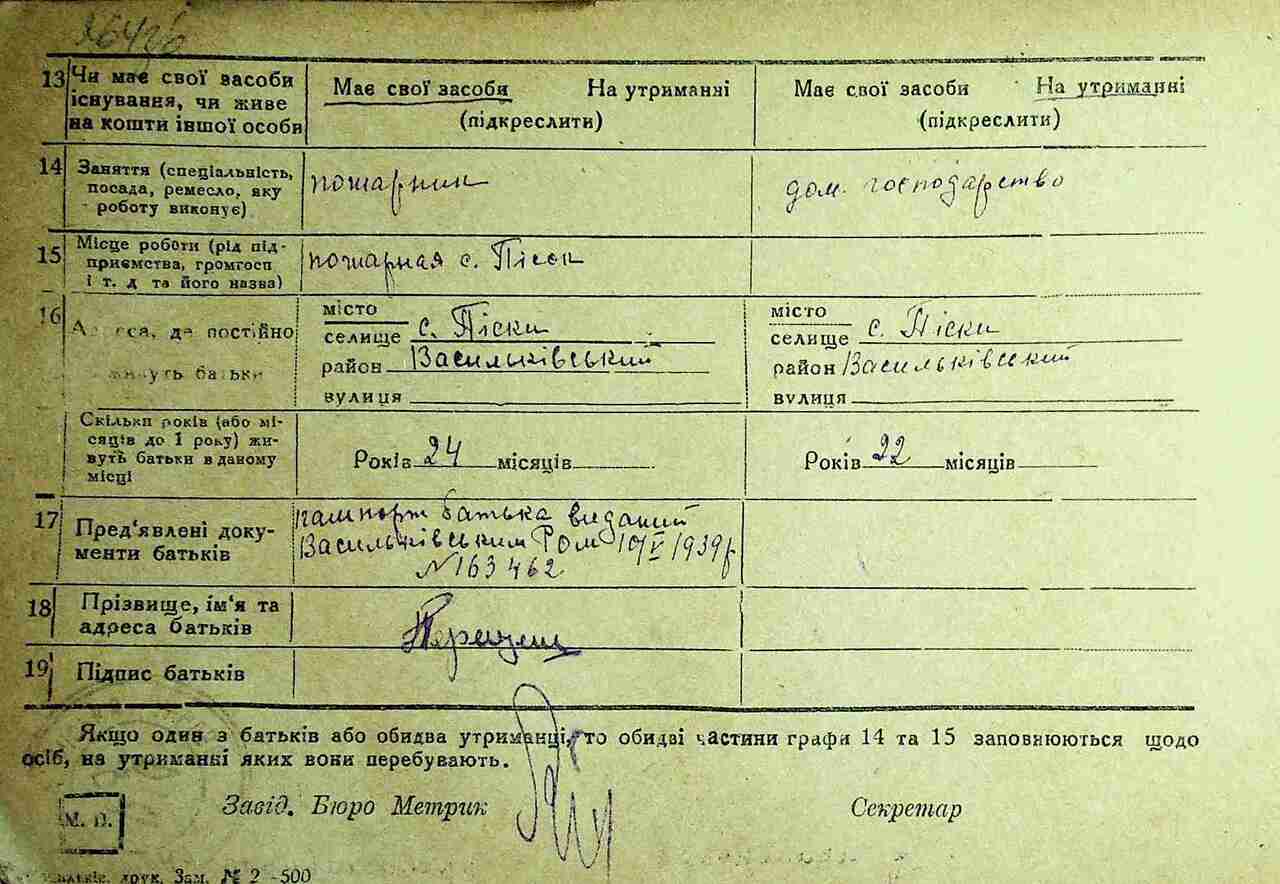 13 Чи має свої засоби існування, чи живе на кошти іншої особи
Має свої засоби На утриманні
(підкреслити)
Має свої засоби На утриманні
(підкреслити)
14 Заняття (спеціальність, посада, ремесло, яку роботу виконує)
пожарник
дом. господарство
15 Місце роботи (рід підприємства, громгосп і т. д та його назва)
пожарная с. Піски
16
де постійно
живуть батьки
місто
селище с. Піски
район Васильківський
вулиця
місто
селище с. Піски
район Васильківський
вулиця
Скільки років (або місяців до 1 року) живуть батьки в даному місці
Років 24 місяців
Років 22 місяців
17 Пред'явлені документи батьків
пашпорт батька виданий
Васильківським Ром 10/V 1939р
№ 163462
18 Прізвище, ім'я та адреса батьків
19 Підпис батьків
Якщо один з батьків або обидва утриманці, то обидві частини графи 14 та 15 заповнюються щодо
осіб, на утриманні яких вони перебувають.
Завід. Бюро Метрик Секретар
М. П.
друк. Зам. № 2 -500